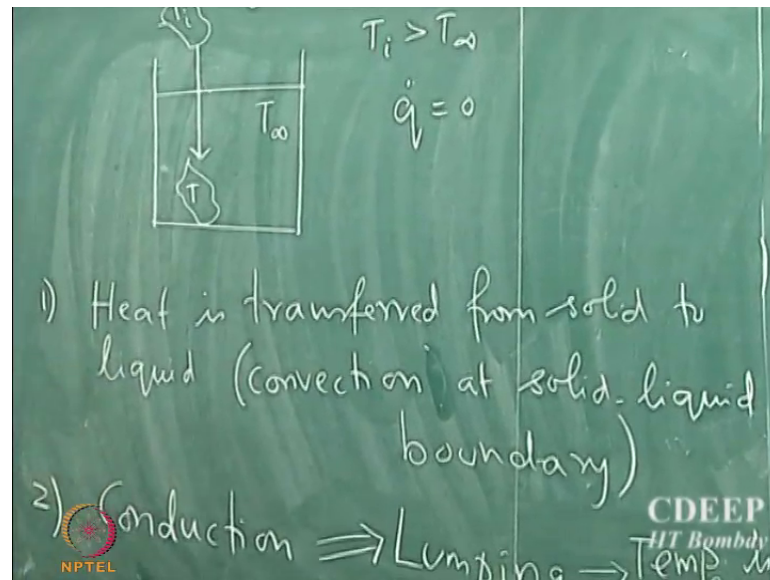 Ti
Ti > T∞
T∞
q̇ = 0
T
1) Heat is transferred from solid to
liquid (convection at solid-liquid
boundary)
2) Conduction ⇒ Lumping → Temp
CDEEP
IIT Bombay
NPTEL